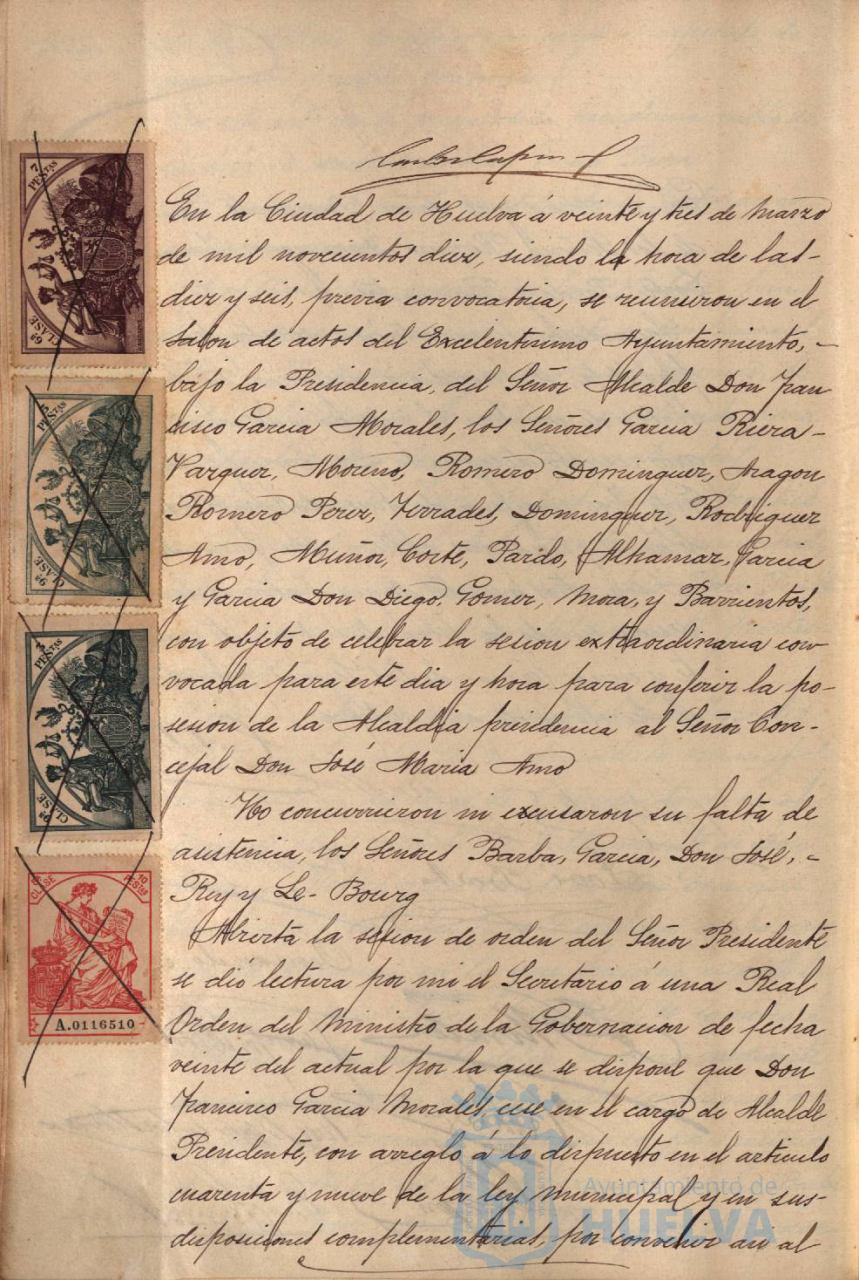 7 PESETAS
6ª CLASE
PESETAS
9ª CLASE
PESETAS
9ª CLASE
CLASE 10 PESETAS
A.0116510
En la Ciudad de Huelva á veinte y tres de Marzo
de mil novecientos diez, siendo la hora de las-
diez y seis, previa convocatoria, se reunieron en el
salon de actos del Excelentisimo Ayuntamiento, -
bajo la Presidencia, del Señor Alcalde Don Fran
cisco Garcia Morales, los Señores Garcia Riera-
Vazquez, Moreno, Romero Dominguez, Aragon
Romero Perez, Terrades, Dominguez, Rodriguez
Amo, Muñoz, Corte, Pardo, Alhamar, Garcia
y Garcia Don Diego, Gomez, Mora, y Barrientos,
con objeto de celebrar la sesion extraordinaria con
vocada para este dia y hora para conferir la po-
sesion de la Alcaldia presidencia al Señor Con-
cejal Don José Maria Amo
No concurrieron ni excusaron su falta de
asistencia, los Señores Barba, Garcia, Don José, -
Rey y Le-Bourg
Abierta la sesion de orden del Señor Presidente
se dió lectura por mi el Secretario á una Real
Orden del Ministro de la Gobernacion de fecha
veinte del actual por la que se dispone que Don
Francisco Garcia Morales, cese en el cargo de Alcalde
Presidente, con arreglo á lo dispuesto en el articulo
cuarenta y nueve de la ley municipal y en sus-
disposiciones complementarias, por convenir asi al
Ayuntamiento de
HUELVA